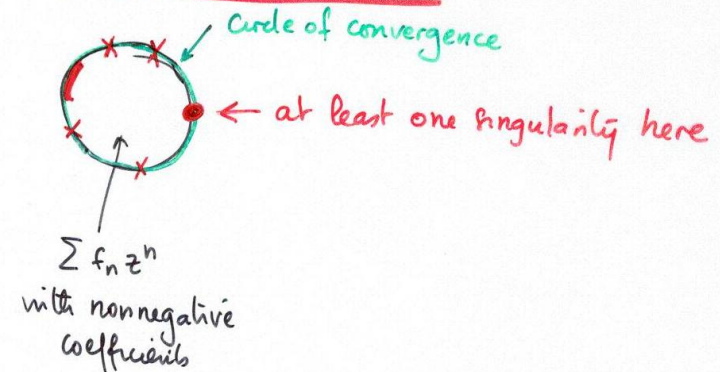 circle of convergence
← at least one singularity here
Σ fₙ zⁿ
with nonnegative
coefficients